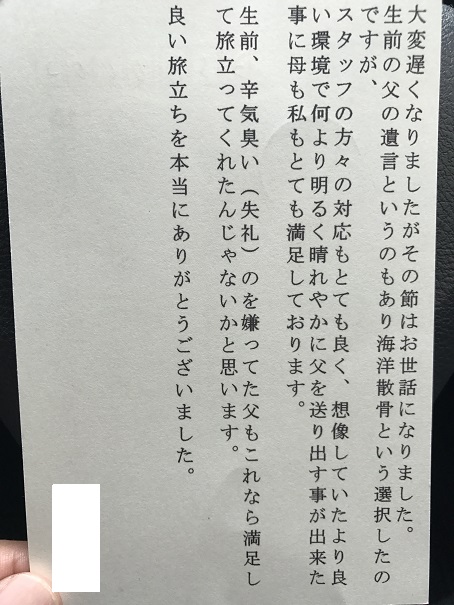 大変遅くなりましたがその節はお世話になりました。
生前の父の遺言というのもあり海洋散骨という選択したの
ですが、
スタッフの方々の対応もとても良く、想像していたより良
い環境で何より明るく晴れやかに父を送り出す事が出来た
事に母も私もとても満足しております。
生前、辛気臭い（失礼）のを嫌ってた父もこれなら満足し
て旅立ってくれたんじゃないかと思います。
良い旅立ちを本当にありがとうございました。